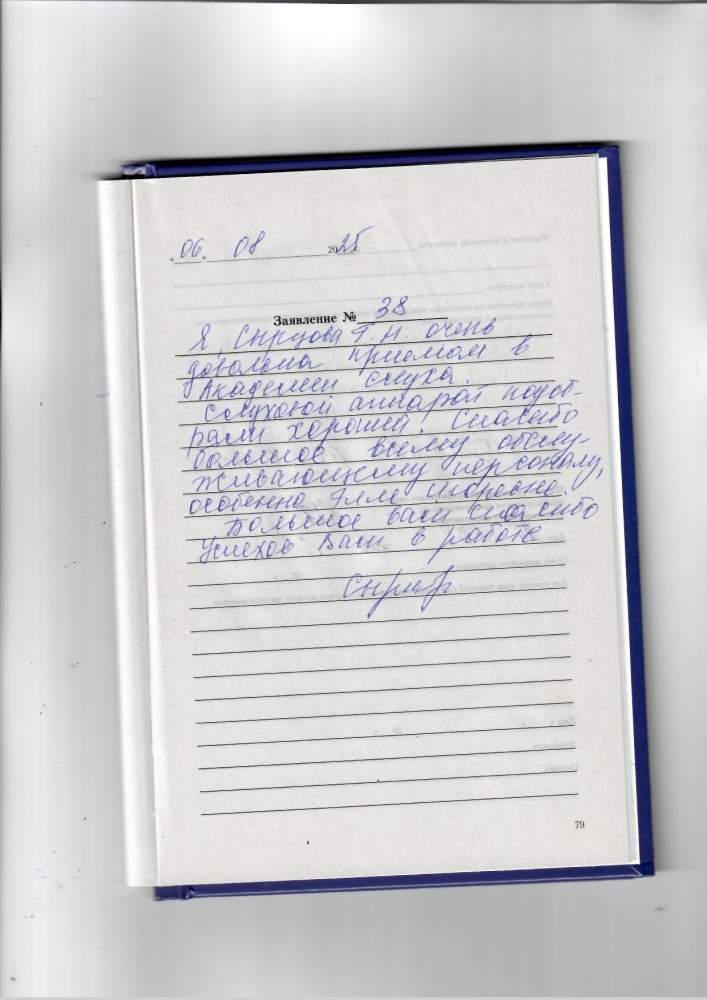 06. 08 2025
Заявление № 38
Я, Сырцова Т. Н. очень
довольна приемом в
Академии слуха.
Слуховой аппарат подоб-
рали хороший. Спасибо
большое всему обслу-
живающему персоналу,
особенно Игоревне.
Большое вам спасибо
Успехов Вам в работе
79